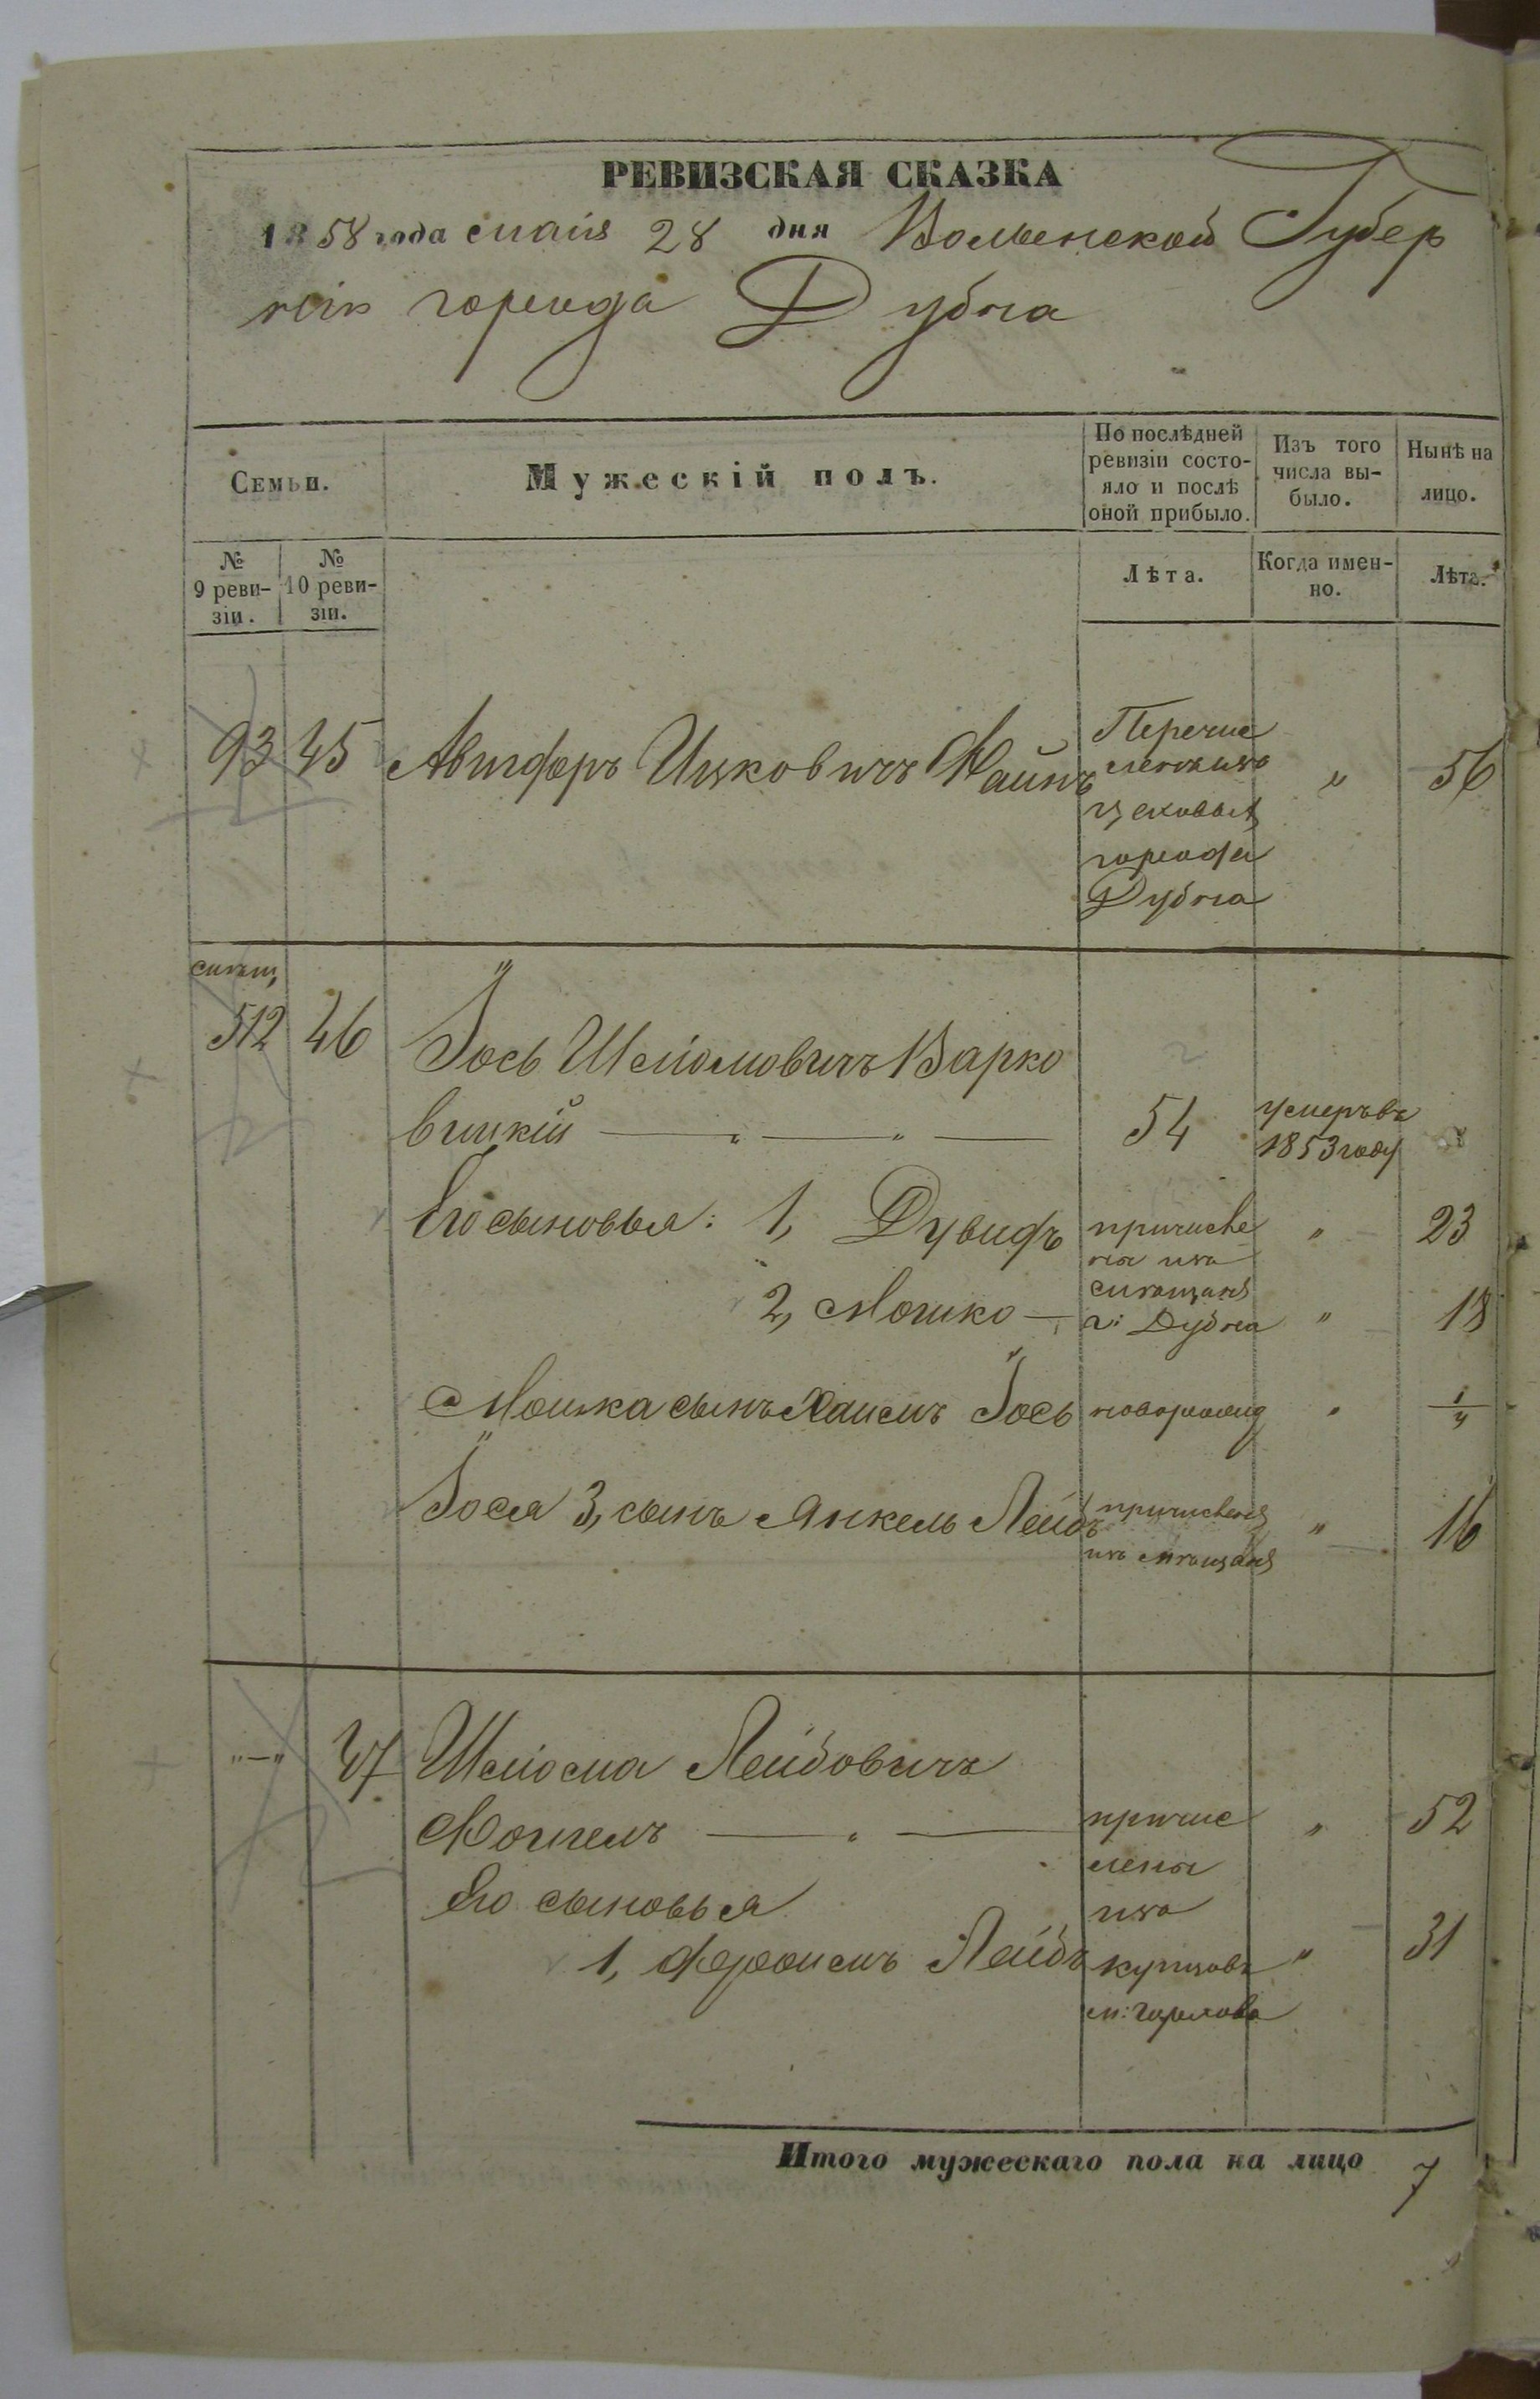 РЕВИЗСКАЯ СКАЗКА
1858 года маія 28 дня Волынской Губер
ніи города Дубна
Семьи.
Мужескій полъ.
По послѣдней ревизіи состо-
яло и послѣ оной прибыло.
Изъ того числа вы-
было.
Нынѣ на лицо.
№ 9 реви-
зіи.
№ 10 реви-
зіи.
Лѣта.
Когда имен-
но.
Лѣта.
93 45 Авигдоръ Ицковичъ Файнъ " 56
Перечис
ленъ изъ
цеховыхъ
города
Дубна
мѣщ,
512 46 Іось Шліомовичъ Варко
вицкій — " — " — 54 умеръ въ
1853 году "
Его сыновья: 1, Дувидъ причисле " 23
ны изъ
мѣщанъ
2, Мошко — г: Дубна " 18
Мошка сынъ Хаимъ Іось новорожд " 1/4
Іося 3, сынъ Янкель Лейбъ причисленъ " 16
изъ мѣщанъ
"—" 47 Шліома Лейбовичъ
— " — причис " 52
лены
Его сыновья изъ
1, Лейбъ купцовъ " 31
Итого мужескаго пола на лицо 7